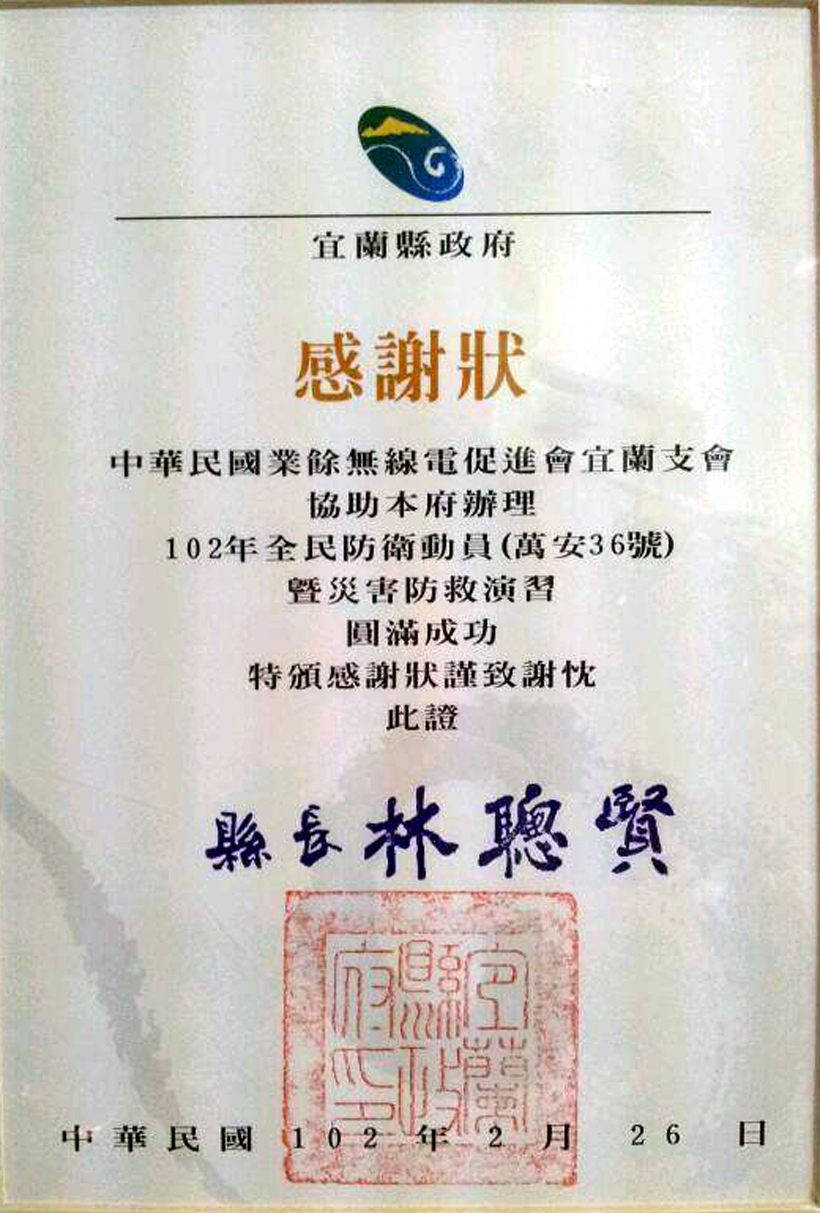 宜蘭縣政府
感謝狀
中華民國業餘無線電促進會宜蘭支會
協助本府辦理
102年全民防衛動員(萬安36號)
暨災害防救演習
圓滿成功
特頒感謝狀謹致謝忱
此證
縣長林聰賢
宜蘭縣政府印
中華民國102年2月26日